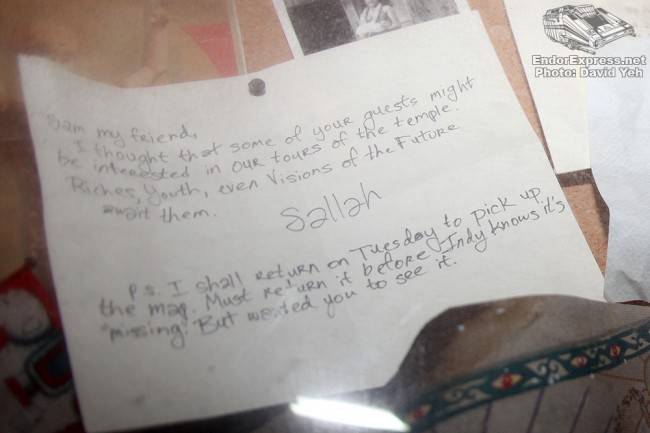 EndorExpress.net
Photo: David Yeh
Sam my friend,
I thought that some of your guests might
be interested in our tours of the temple.
Riches, Youth, even Visions of the Future
await them.
Sallah
P.S. I shall return on Tuesday to pick up
the map. Must return it before Indy knows it's
"missing." But wanted you to see it.